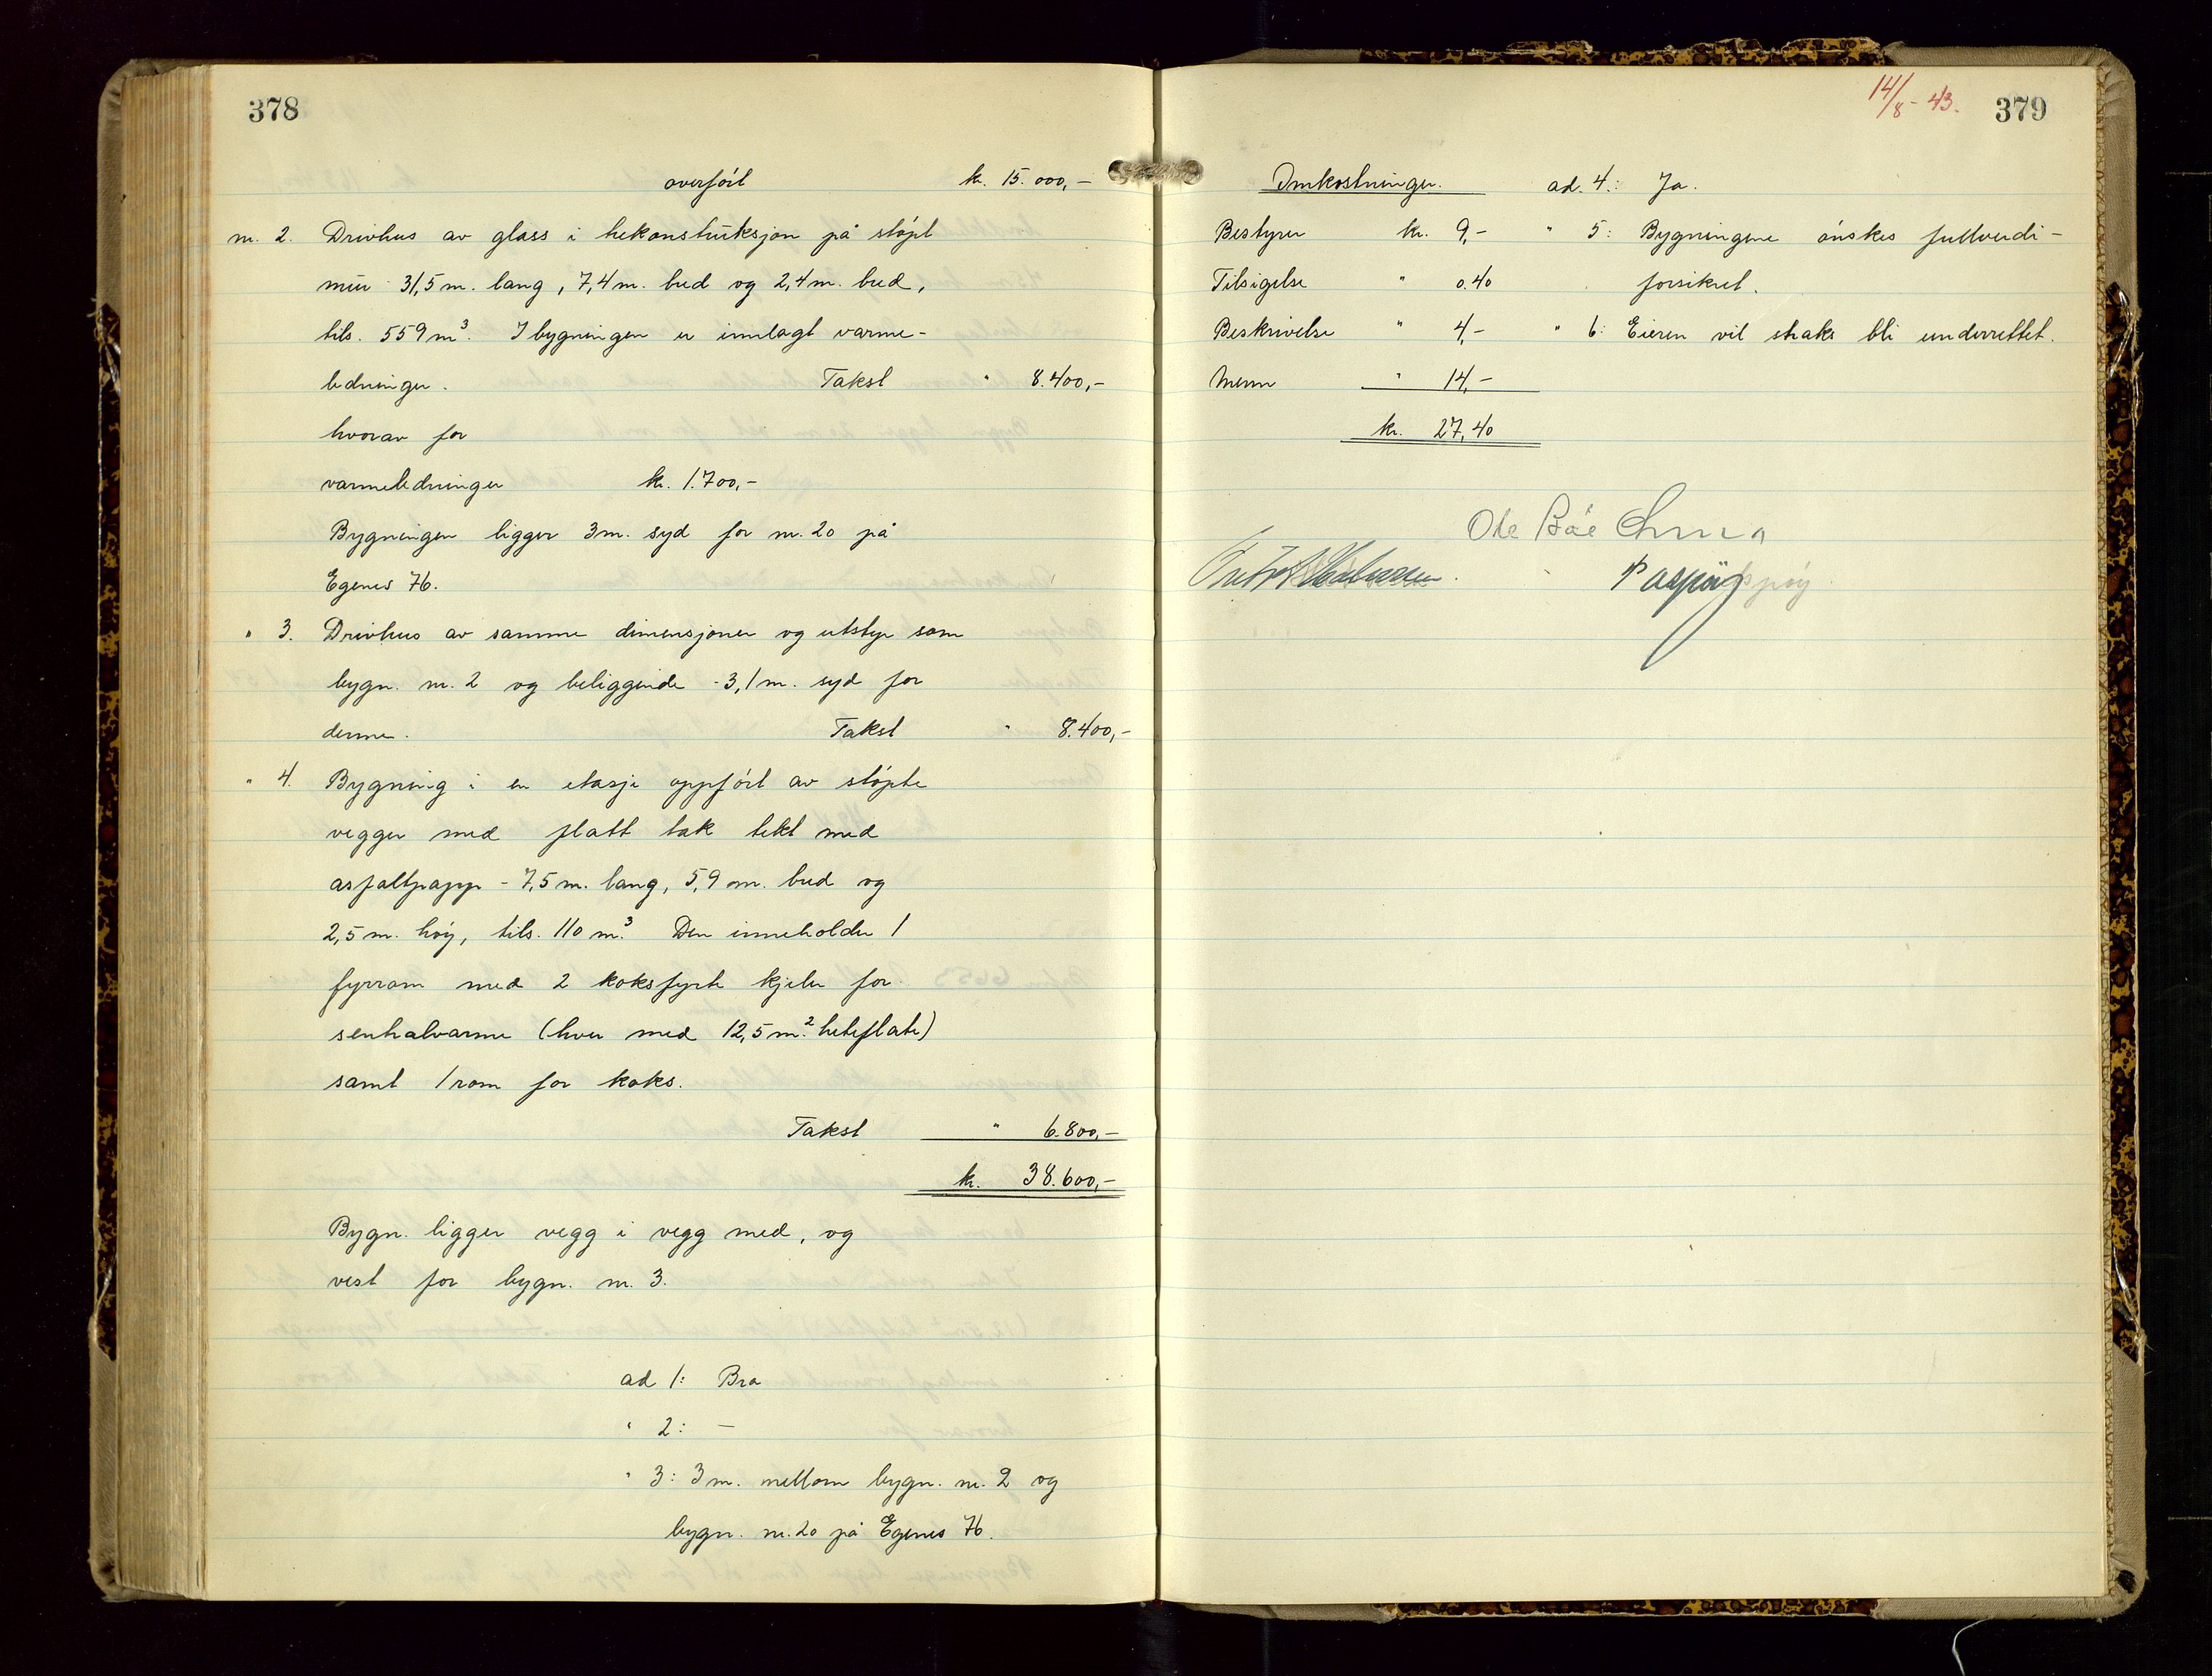 378
overført kr. 15.000,-
nr. 2. Drivhus av glass i trekonstruksjon på støpt
mur 31,5 m. lang, 7,4 m. bred og 2,4 m. bred,
tils. 559 m³. I bygningen er innlagt varme-
ledninger. Takst " 8.400,-
hvorav for
varmeledninger kr. 1.700,-
Bygningen ligger 3 m. syd for nr. 20 på
Egenes 76.
" 3. Drivhus av samme dimensjoner og utstyr som
bygn. nr. 2 og beliggende - 3,1 m. syd for
denne. Takst " 8.400,-
" 4. Bygning i en etasje oppført av støpte
vegger med flatt tak tekt med
asfaltpapp - 7,5 m. lang, 5,9 m. bred og
2,5 m. høy, tils. 110 m³. Den inneholder 1
fyrrom med 2 koksfyrte kjeler for
sentralvarme (hver med 12,5 m.² heteflate)
samt 1 rom for koks.
Takst " 6.800,-
kr. 38.600,-
Bygn. ligger vegg i vegg med, og
vest for bygn. nr. 3.
ad 1: Bra
" 2: —
" 3: 3 m. mellom bygn. nr. 2 og
bygn. nr. 20 på Egenes 76.
14/8 - 43. 379
Omkostninger. ad. 4: Ja.
Bestyrer kr. 9,- " 5: Bygningene ønskes fullverdi-
Tilsigelse " 0.40 forsikret.
Beskrivelse " 4,- " 6: Eieren vil straks bli underrettet.
Menn " 14,-
kr. 27,40
Ole